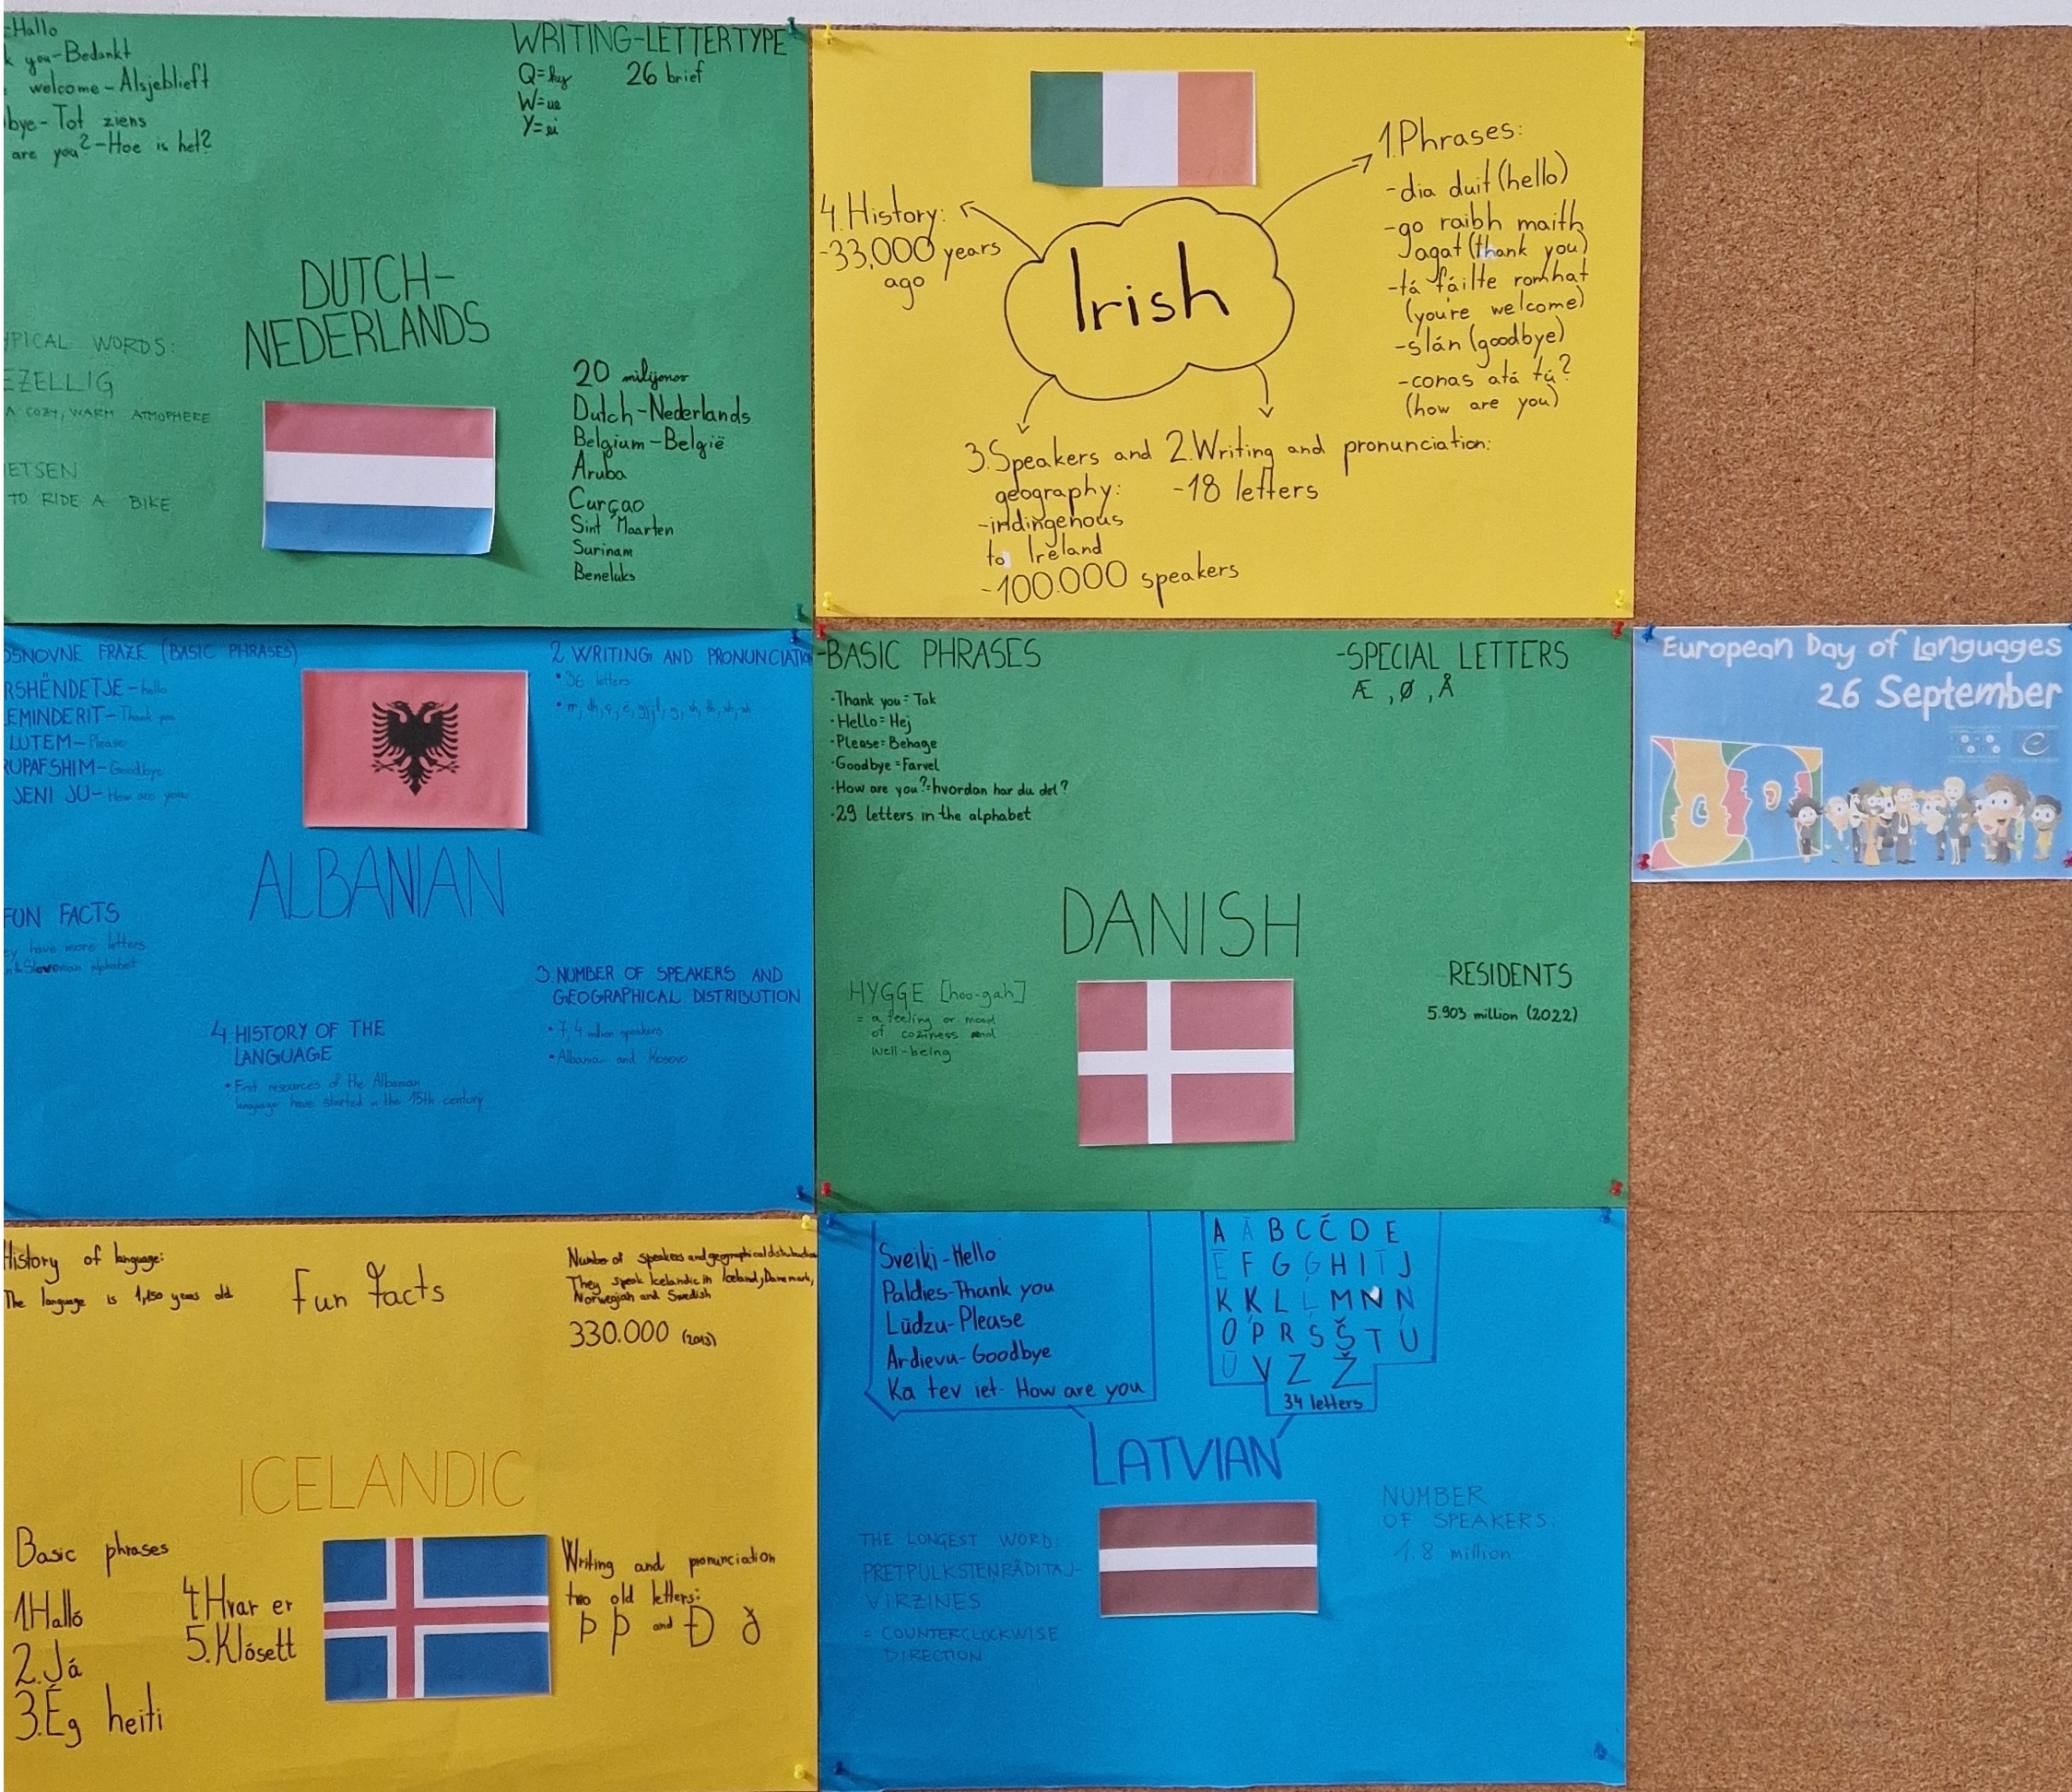 Hallo
you-Bedankt
welcome-Alsjeblieft
bye-Tot ziens
are you?-Hoe is het?
WRITING-LETTERTYPE
Q=ky 26 brief
W=ue
Y=ei
DUTCH-
NEDERLANDS
YPICAL WORDS:
EZELLIG
A COZY, WARM ATMOPHERE
IETSEN
TO RIDE A BIKE
20 milijonov
Dutch-Nederlands
Belgium-België
Aruba
Curçao
Sint Maarten
Surinam
Beneluks
4.History:
-33.000 years
ago
Irish
1.Phrases:
-dia duit (hello)
-go raibh maith
agat (thank you)
-tá fáilte romhat
(you're welcome)
-slán (goodbye)
-conas atá tú?
(how are you)
3.Speakers and
geography:
-indingenous
to Ireland
-100.000 speakers
2.Writing and pronunciation:
-18 letters
OSNOVNE FRAZE (BASIC PHRASES)
RSHËNDETJE-hello
EMINDERIT-Thank you
LUTEM-Please
RUPAFSHIM-Goodbye
JENI JU-How are you
2.WRITING AND PRONUNCIATION
•36 letters
ALBANIAN
FUN FACTS
ey have more letters
Slovenian alphabet
3.NUMBER OF SPEAKERS AND
GEOGRAPHICAL DISTRIBUTION
•7,4 million speakers
•Albania and Kosovo
4.HISTORY OF THE
LANGUAGE
•First resources of the Albanian
language have started in the 15th century
-BASIC PHRASES
•Thank you=Tak
•Hello=Hej
•Please=Behage
•Goodbye=Farvel
•How are you?=hvordan har du det?
•29 letters in the alphabet
-SPECIAL LETTERS
Æ, Ø, Å
DANISH
HYGGE [hoo-gah]
= a feeling or mood
of coziness and
well-being
-RESIDENTS
5.903 million (2022)
European Day of Languages
26 September
History of language:
The language is 1,150 years old
Fun facts
Number of speakers and geographical distribution
They speak Icelandic in Iceland, Danemark,
Norwegian and Swedish
330.000 (2013)
ICELANDIC
Basic phrases
1.Halló
2.Já
3.Ég heiti
4.Hvar er
5.Klósett
Writing and pronunciation
two old letters:
Þ þ and Ð ð
Sveiki-Hello
Paldies-Thank you
Lūdzu-Please
Ardievu-Goodbye
Ka tev iet-How are you
A Ā B C Č D E
Ē F G Ģ H I Ī J
K Ķ L Ļ M N Ņ
O P R S Š T U
Ū V Z Ž
34 letters
LATVIAN
THE LONGEST WORD:
PRETPULKSTEŅRĀDĪTĀJ-
VIRZINES
= COUNTERCLOCKWISE
DIRECTION
NUMBER
OF SPEAKERS:
1.8 million